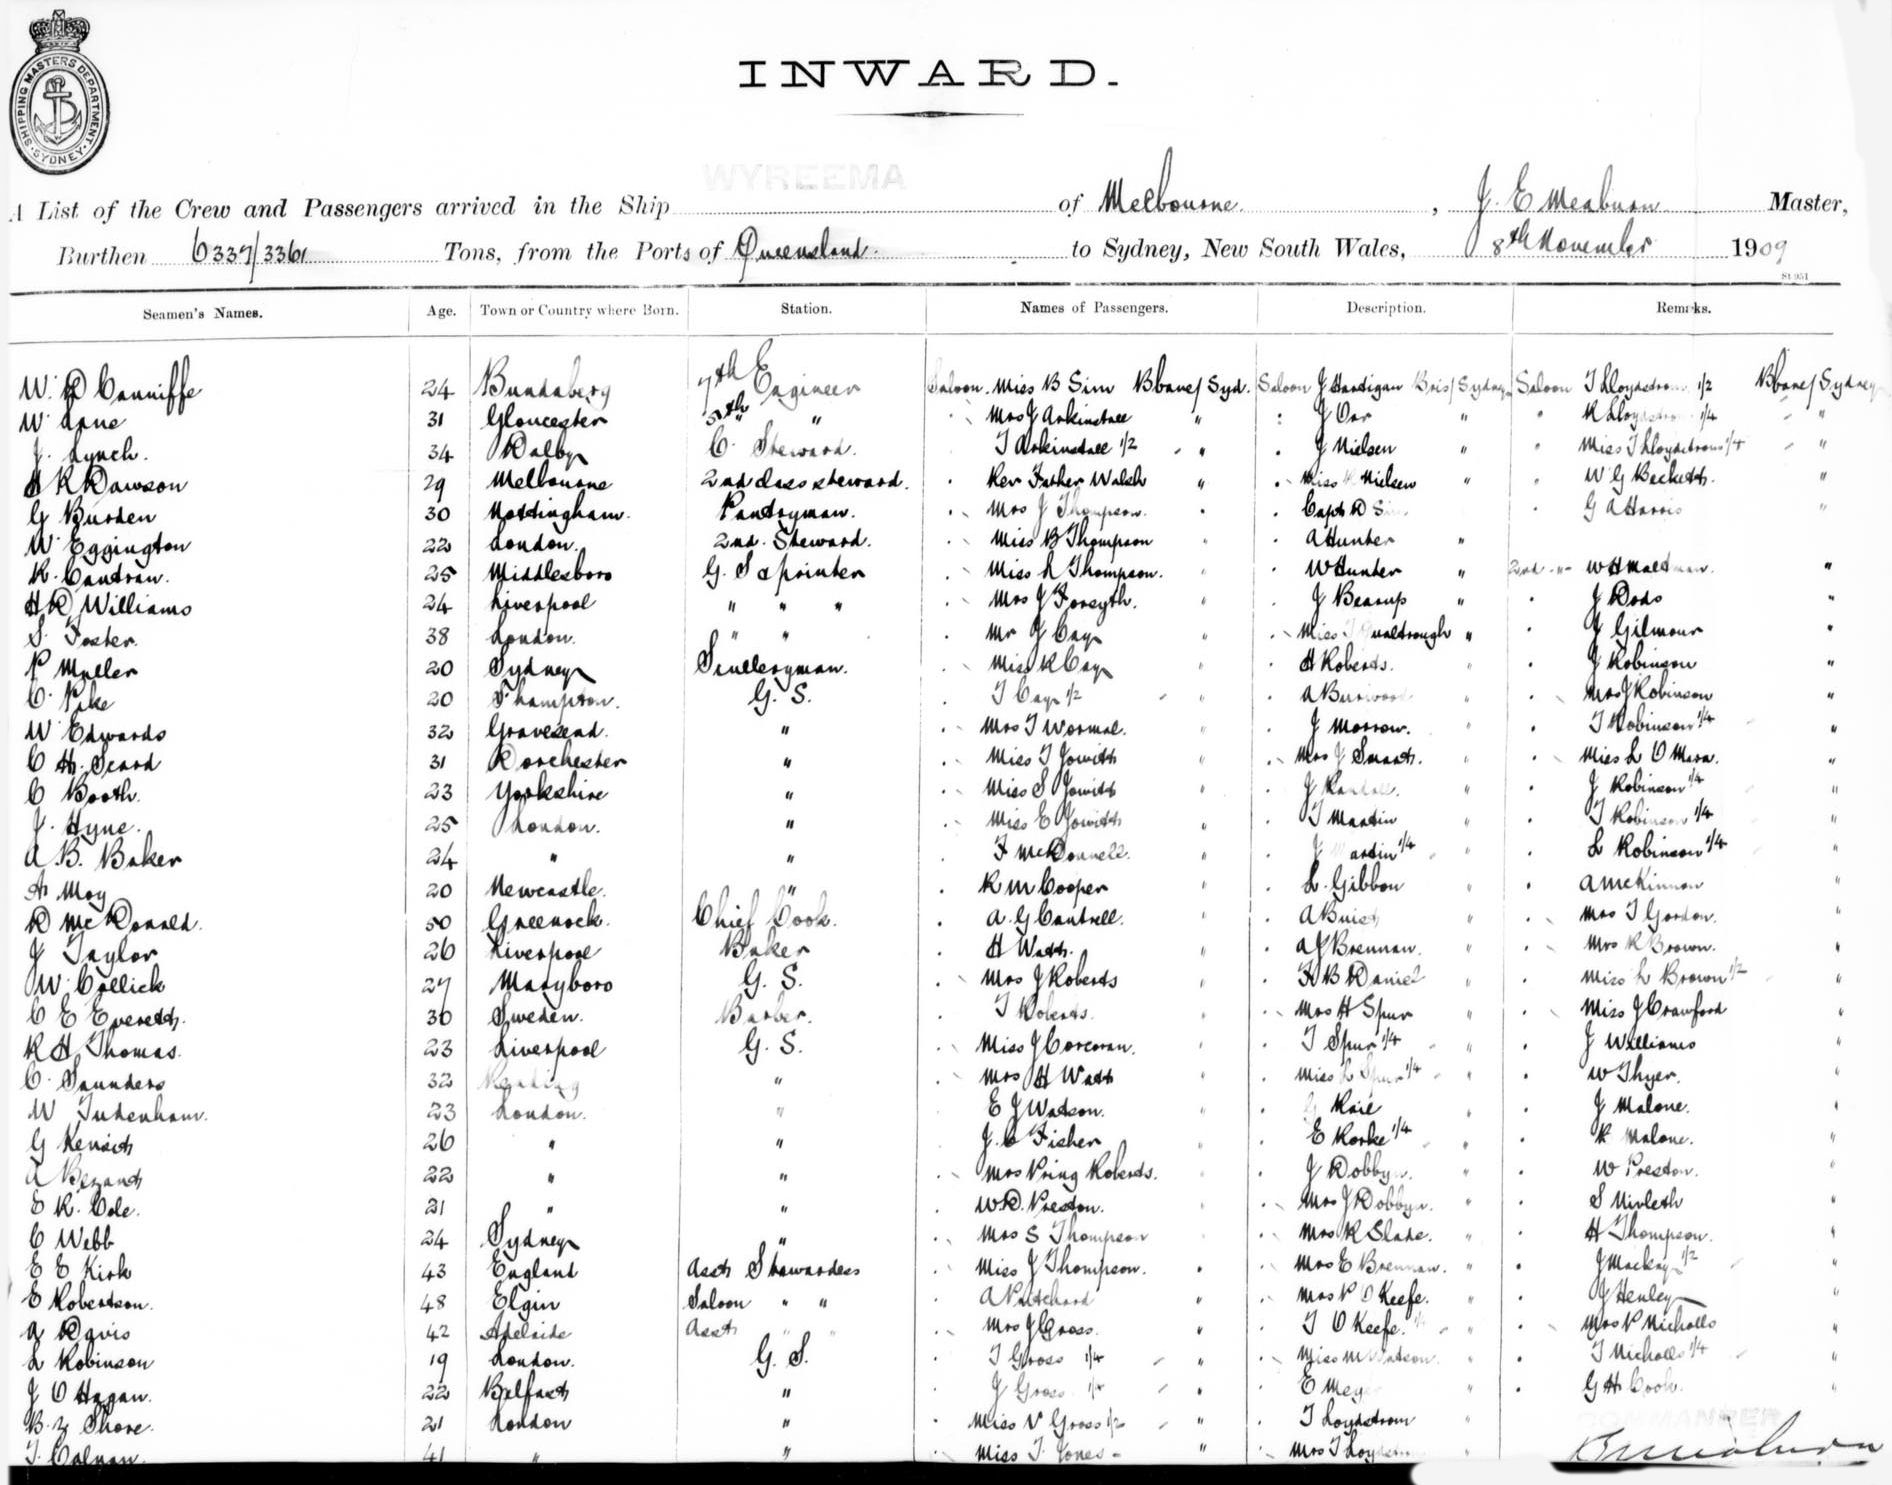 SHIPPING MASTERS DEPARTMENT. SYDNEY
INWARD.
WYREEMA
A List of the Crew and Passengers arrived in the Ship of Melbourne, J. E Meaburn Master,
Burthen 6337/3361 Tons, from the Ports of Queensland. to Sydney, New South Wales, 8th November 1909
Seamen's Names. Age. Town or Country where Born. Station. Names of Passengers. Description. Remarks.
W. D Canniffe 24 Bundaberg 7th Engineer Saloon. Miss B Sim Bbane/Syd. Saloon J Hartigan Bris/Sydney Saloon T Lloydstrom 1/2 Bbane/Sydney
W Lane 31 Gloucester " Mrs J Arkinstall " J Orr " K 1/4 "
J. Lynch. 34 Dalby C. Steward. T Arkinstall 1/2 " J Nielsen " Miss T Lloydstrom 1/4 "
K Dawson 29 Melbourne 2nd class steward. Rev Father Walsh " Miss Nielsen " W G Beckett. "
G Burden 30 Nottingham. Pantryman. Mrs J Thompson. " Capt D G A Harris "
W Eggington 22 London. 2nd. Steward. Miss B Thompson " A Hunter "
R. 25 Middlesboro G. S & printer Miss L Thompson. " W Hunter " 2nd "
H D Williams 24 Liverpool " " " Mrs J Forsyth. " J Bearup " J Dods "
S. Foster. 38 London. " " Mr J Cay " Miss Qualtrough " J Gilmour "
P Muller 20 Sydney Sculleryman. Miss K Cay " H Roberts. " J Robinson "
C. Pike 20 S'hampton. G. S. T Cay 1/2 " A " Mrs J Robinson "
W Edwards 32 Gravesend. " Mrs T Wormal. " J Morrow. " T Robinson 1/4 "
C H. Scard 31 Dorchester " Miss T Jowitt " Mrs J Smart. " Miss L O Mara. "
C Booth. 23 Yorkshire " Miss S Jowitt " J " J Robinson 1/4 "
J. Hyne. 25 London. " Miss E Jowitt " T Martin " T Robinson 1/4 "
A B. Baker 24 " " F McDonnell. " J Martin 1/4 " L Robinson 1/4 "
A Moy 20 Newcastle. " R M Cooper " L. Gibbon " A McKinnon "
D McDonald. 50 Greenock. Chief Cook. A. G Cantrell. " A Buist " Mrs T Gordon. "
J Taylor 26 Liverpool Baker H Watt. " A J Brennan. " Mrs R Brown. "
W. Collick 27 Maryboro G. S. Mrs J Roberts " H B Daniel " Miss L Brown 1/2 "
C E Everett. 30 Sweden. Barber. T Roberts. " Mrs H Spur " Miss J Crawford "
R H Thomas. 23 Liverpool G. S. Miss J Corcoran. " T Spur 1/4 " J Williams "
C. Saunders 32 Reading " Mrs H Watt " Miss L Spur 1/4 " W Thyer. "
W Tudenham. 23 London. " E J Watson. " " J Malone. "
G 26 " " J. C Fisher " E Rorke 1/4 " K Malone. "
A Bezant 22 " " Mrs Pring Roberts. " J Dobbyn. " W Preston. "
E R. Cole. 21 " " W. D. Preston. " Mrs J Dobbyn. " S "
C Webb 24 Sydney " Mrs S Thompson " Mrs R Slade. " H Thompson. "
E E Kirk 43 England Asst Stewardess Miss J Thompson. " Mrs E Brennan. " J Mackay 1/2 "
E Robertson. 48 Elgin Saloon " " A Pritchard " Mrs P O Keefe. " J Henley "
A Davis 42 Adelaide Asst " " Mrs J Gross. " T O Keefe. " Mrs P Nicholls "
L Robinson 19 London. G. S. T Gross 1/4 " Miss M Watson. " T Nicholls 1/4 "
J O Hagan. 22 Belfast " J Gross 1/4 " E " G H Cook. "
B. Shore. 21 London " Miss V Gross 1/2 " T Loydstrom "
T. Colman. 41 " " Miss T. Jones " Mrs T "
COMMANDER